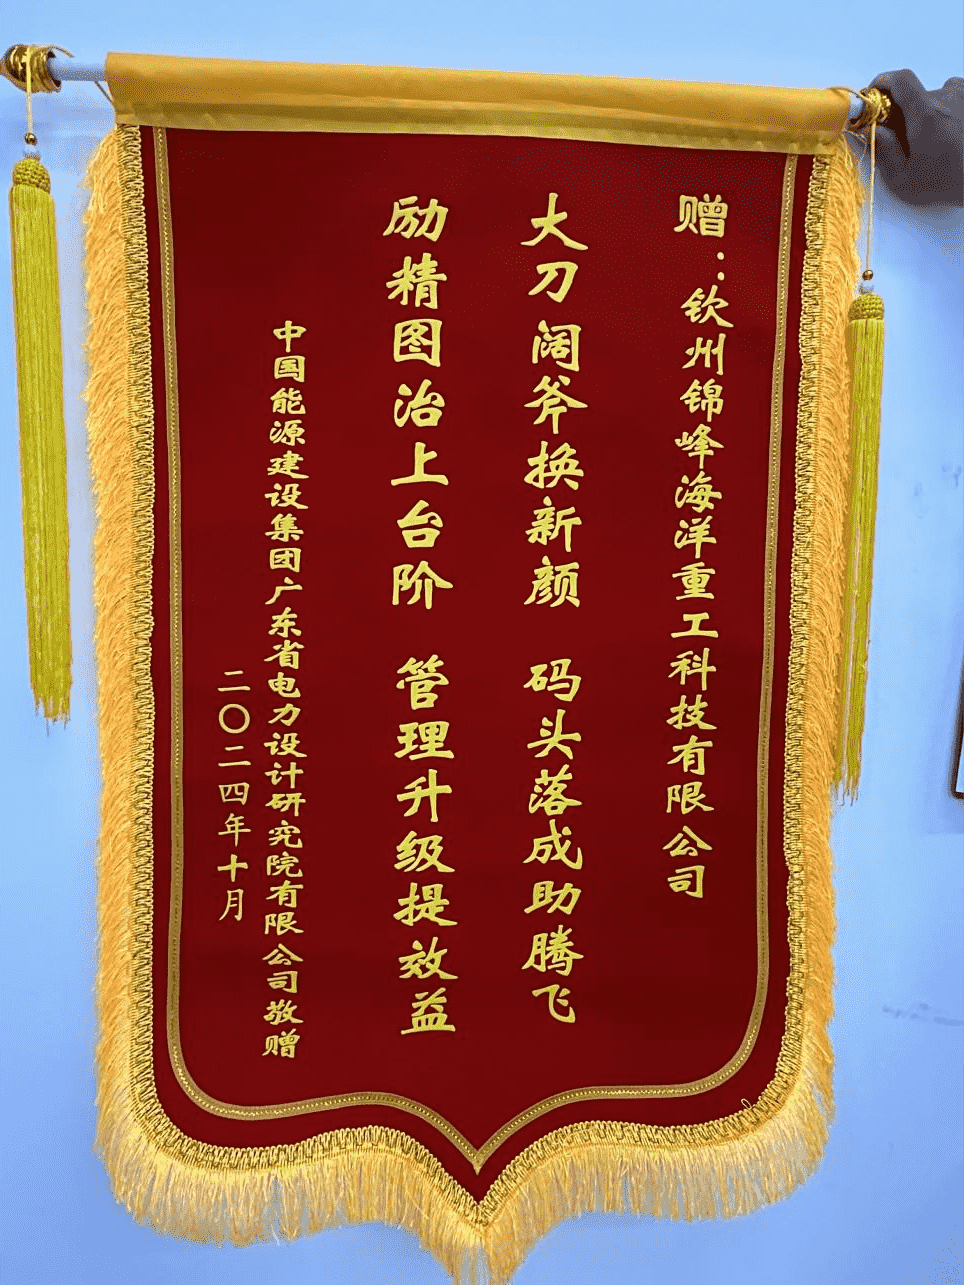 赠：钦州锦峰海洋重工科技有限公司
大刀阔斧换新颜 码头落成助腾飞
励精图治上台阶 管理升级提效益
中国能源建设集团广东省电力设计研究院有限公司敬赠
二〇二四年十月